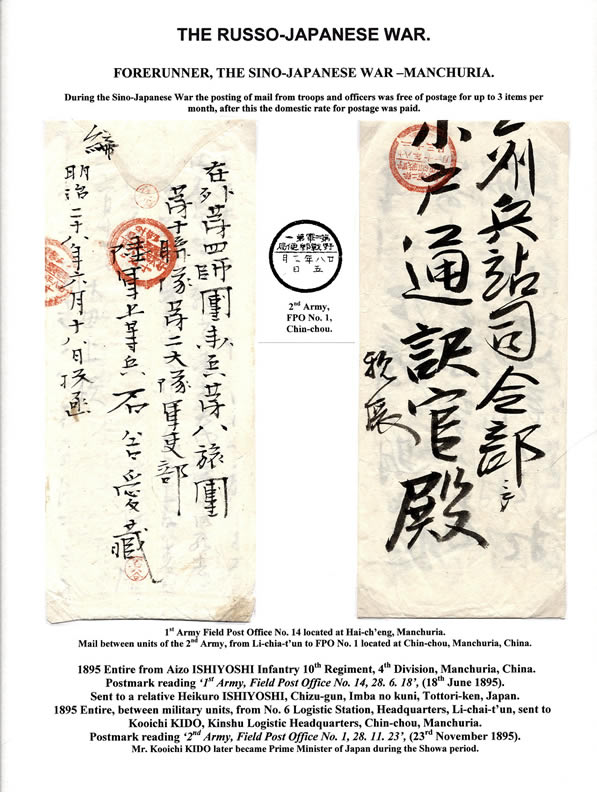 THE RUSSO-JAPANESE WAR.
FORERUNNER, THE SINO-JAPANESE WAR –MANCHURIA.
During the Sino-Japanese War the posting of mail from troops and officers was free of postage for up to 3 items per
month, after this the domestic rate for postage was paid.
在外第四師團歩兵第八旅團
第十聯隊第二大隊軍吏部
陸軍上等兵 石吉愛藏
明治二十八年六月十八日投函
締
一第軍二第
局便郵戰野
月二年八廿
日五
2nd Army,
FPO No. 1,
Chin-chou.
州兵站司令部
小戸通訳官殿
親展
1st Army Field Post Office No. 14 located at Hai-ch'eng, Manchuria.
Mail between units of the 2nd Army, from Li-chia-t'un to FPO No. 1 located at Chin-chou, Manchuria, China.
1895 Entire from Aizo ISHIYOSHI Infantry 10th Regiment, 4th Division, Manchuria, China.
Postmark reading '1st Army, Field Post Office No. 14, 28. 6. 18', (18th June 1895).
Sent to a relative Heikuro ISHIYOSHI, Chizu-gun, Imba no kuni, Tottori-ken, Japan.
1895 Entire, between military units, from No. 6 Logistic Station, Headquarters, Li-chai-t'un, sent to
Kooichi KIDO, Kinshu Logistic Headquarters, Chin-chou, Manchuria.
Postmark reading '2nd Army, Field Post Office No. 1, 28. 11. 23', (23rd November 1895).
Mr. Kooichi KIDO later became Prime Minister of Japan during the Showa period.